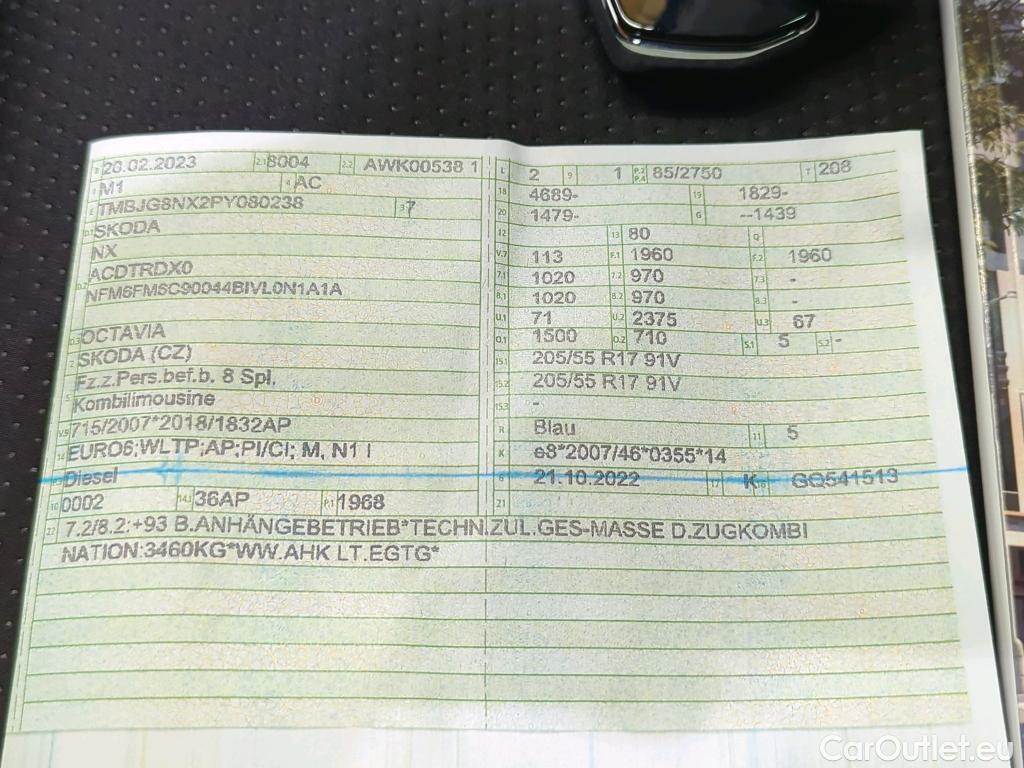 B 20.02.2023 2.1 8004 2.2 AWK00538 1
J M1 4 AC
E TMBJG8NX2PY080238 3 7
D.1 SKODA
NX
D.2 ACDTRDX0
NFM6FM6C90044BIVL0N1A1A
D.3 OCTAVIA
2 SKODA (CZ)
5 Fz.z.Pers.bef.b. 8 Spl.
Kombilimousine
V.9 715/2007*2018/1832AP
14 EURO6;WLTP;AP;PI/CI; M, N1 I
Diesel
10 0002 14.1 36AP P.1 1968
L 2 9 1 P.2 P.4 85/2750 T 208
18 4689- 19 1829-
20 1479- G --1439
12 13 80 Q
V.7 113 F.1 1960 F.2 1960
7.1 1020 7.2 970 7.3 -
8.1 1020 8.2 970 8.3 -
U.1 71 U.2 2375 U.3 67
O.1 1500 O.2 710 S.1 5 S.2 -
15.1 205/55 R17 91V
15.2 205/55 R17 91V
15.3 -
R Blau 11 5
K e8*2007/46*0355*14
6 21.10.2022 17 K 16 GQ541513
21
22 7.2/8.2:+93 B.ANHÄNGEBETRIEB*TECHN.ZUL.GES-MASSE D.ZUGKOMBI
NATION:3460KG*WW.AHK LT.EGTG*
CarOutlet.eu